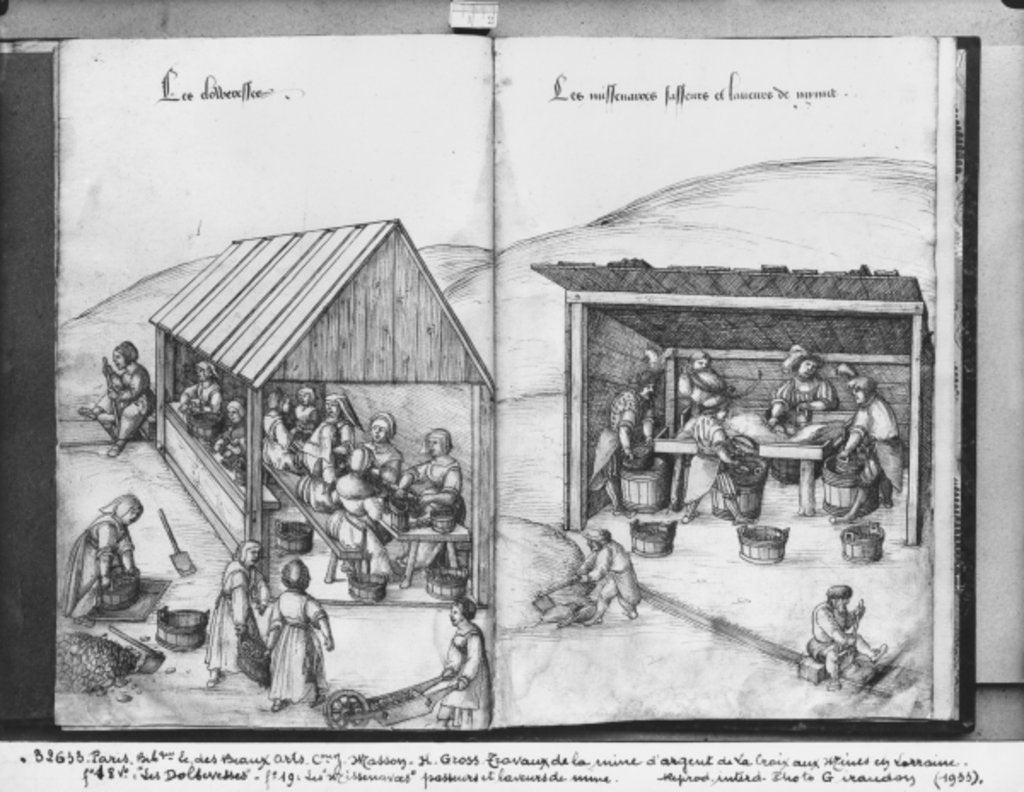 Les dolberesses
Les missenaires passeurs et laveurs de myne
1 2
. 32633. Paris, Bibl.que Ec. des Beaux Arts. C.on J. Masson. H. Gross Travaux de la mine d'argent de La Croix aux Mines en Lorraine.
f° 18 v° "Les Dolberesses" - f° 19. Les "Missenaires" passeurs et laveurs de mine. Reprod. interd. Photo Giraudon (1933).